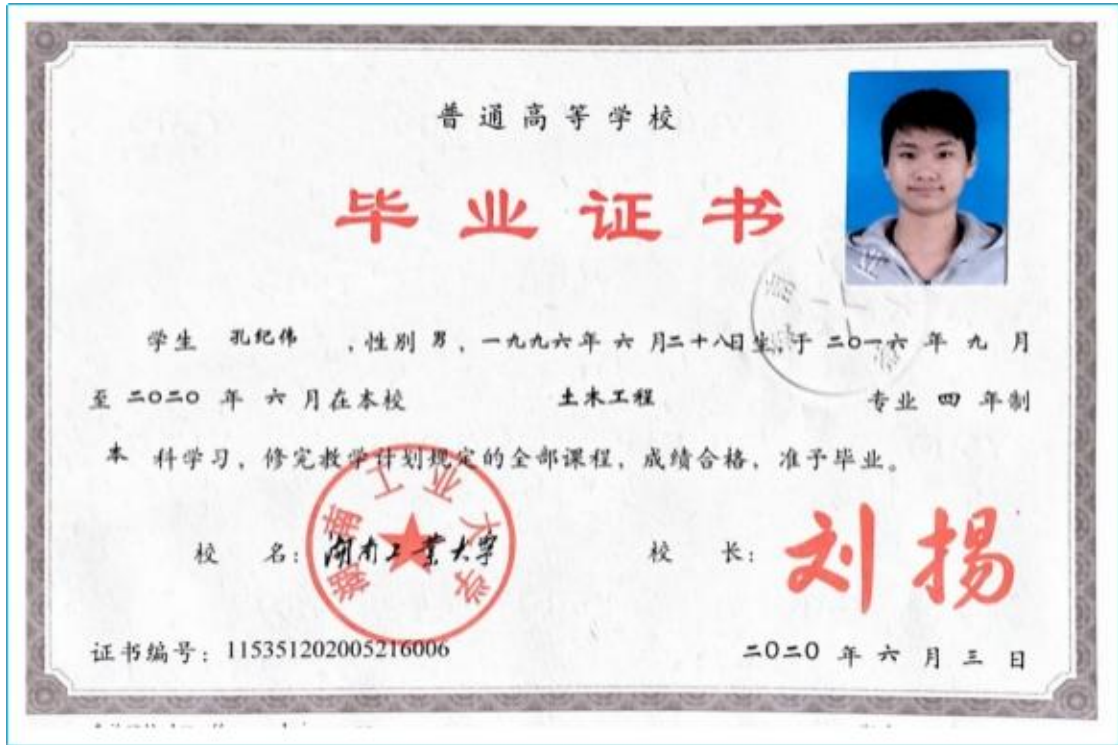 普通高等学校
毕业证书
学生 孔纪伟 ，性别 男，一九九六年 六 月二十八日生，于 二〇一六 年 九 月
至 二〇二〇 年 六 月在本校 土木工程 专业 四 年制
本 科学习，修完教学计划规定的全部课程，成绩合格，准予毕业。
湖南工业大学
校 名：湖南工业大学 校 长：刘扬
证书编号：115351202005216006 二〇二〇 年 六 月 三 日